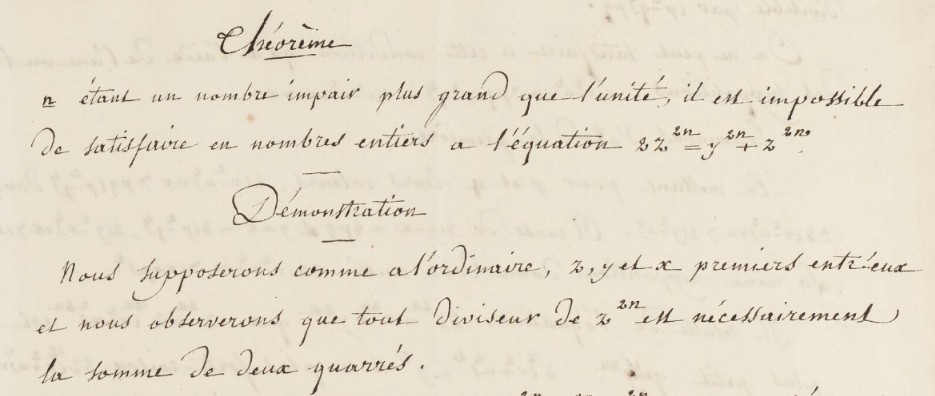 Théorème
n étant un nombre impair plus grand que l'unité, il est impossible
de satisfaire en nombres entiers a l'équation 2z^{2n} = y^{2n} + z^{2n}.
Démonstration
Nous supposerons comme a l'ordinaire, z, y et x premiers entr'eux
et nous observerons que tout diviseur de z^{2n} est nécessairement
la somme de deux quarrés.